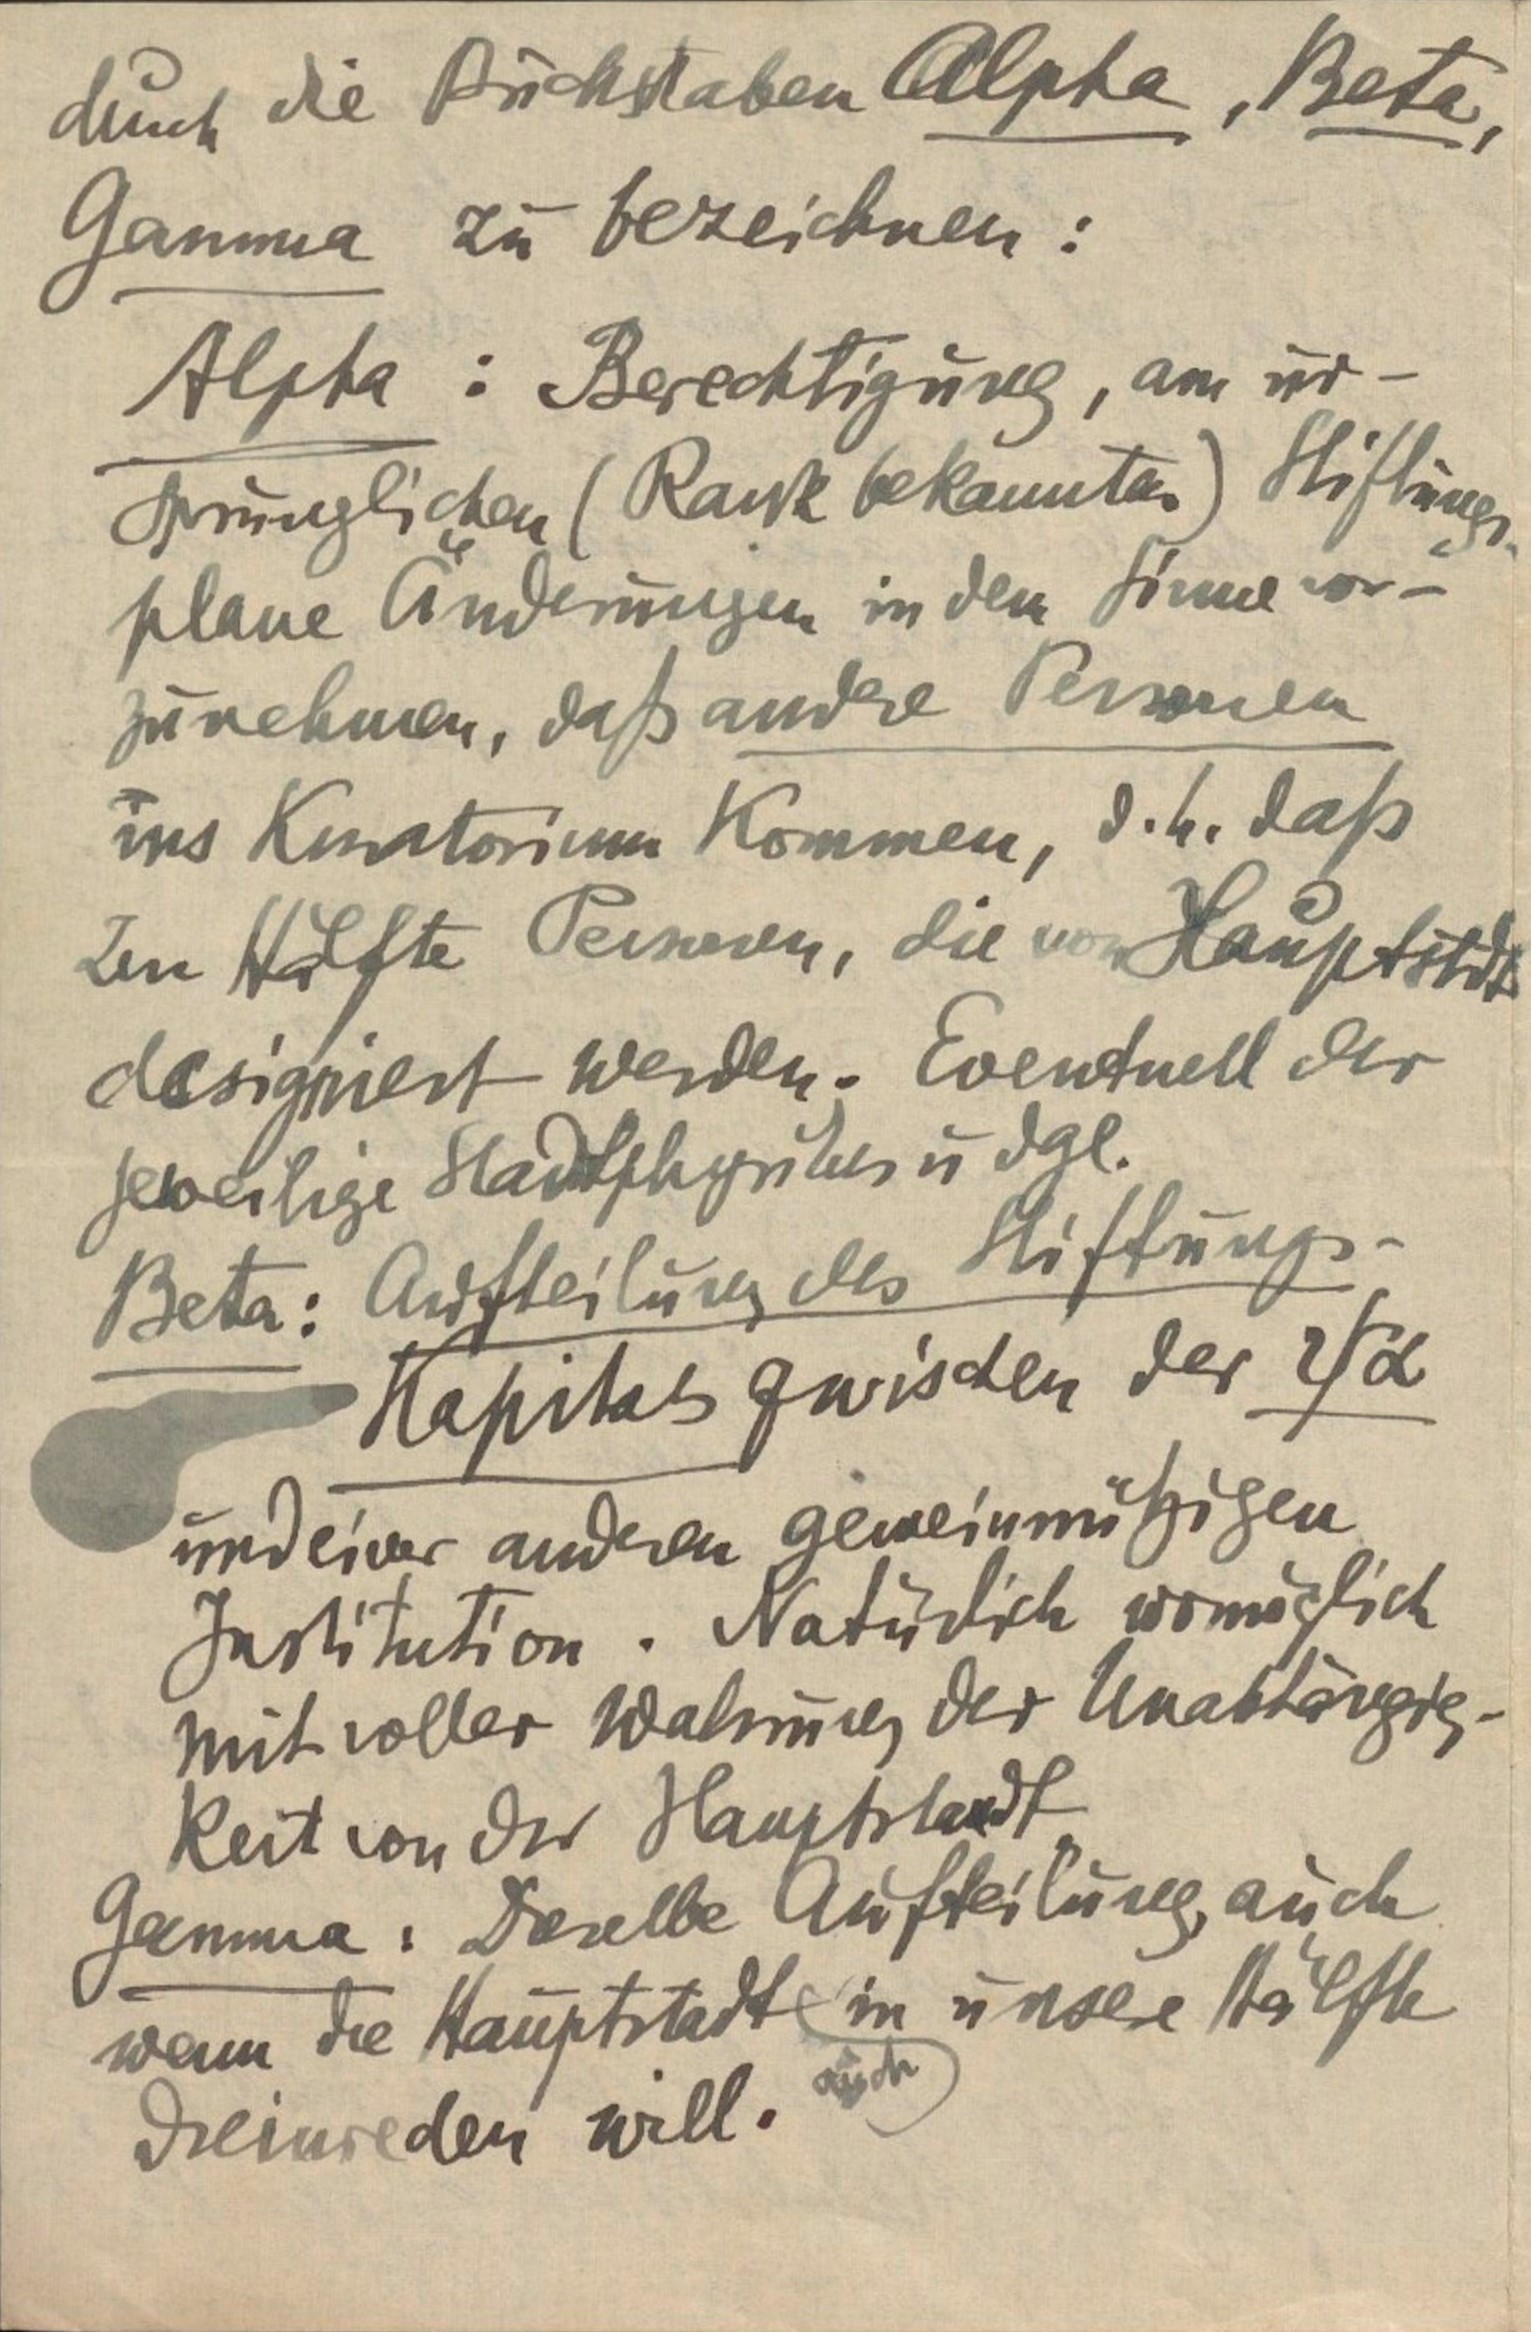 durch die Buchstaben Alpha, Beta,
Gamma zu bezeichnen:
Alpha: Berechtigung, am ur-
sprünglichen (Rank bekannten) Stiftungs-
plane Änderungen in dem Sinne vor-
zunehmen, daß andere Personen
ins Kuratorium kommen, d.h. daß
zur Hälfte Personen, die von Hauptstdt
designiert werden. Eventuell der
jeweilige Stadtphysikus u dgl.
Beta: Aufteilung des Stiftungs-
Kapitals zwischen der ψα
und einer anderen gemeinnützigen
Institution. Natürlich womöglich
mit voller Wahrung der Unabhängig-
keit von der Hauptstadt
Gamma: Dieselbe Aufteilung, auch
wenn die Hauptstadt in unsere Hälfte
auch
dreinreden will.